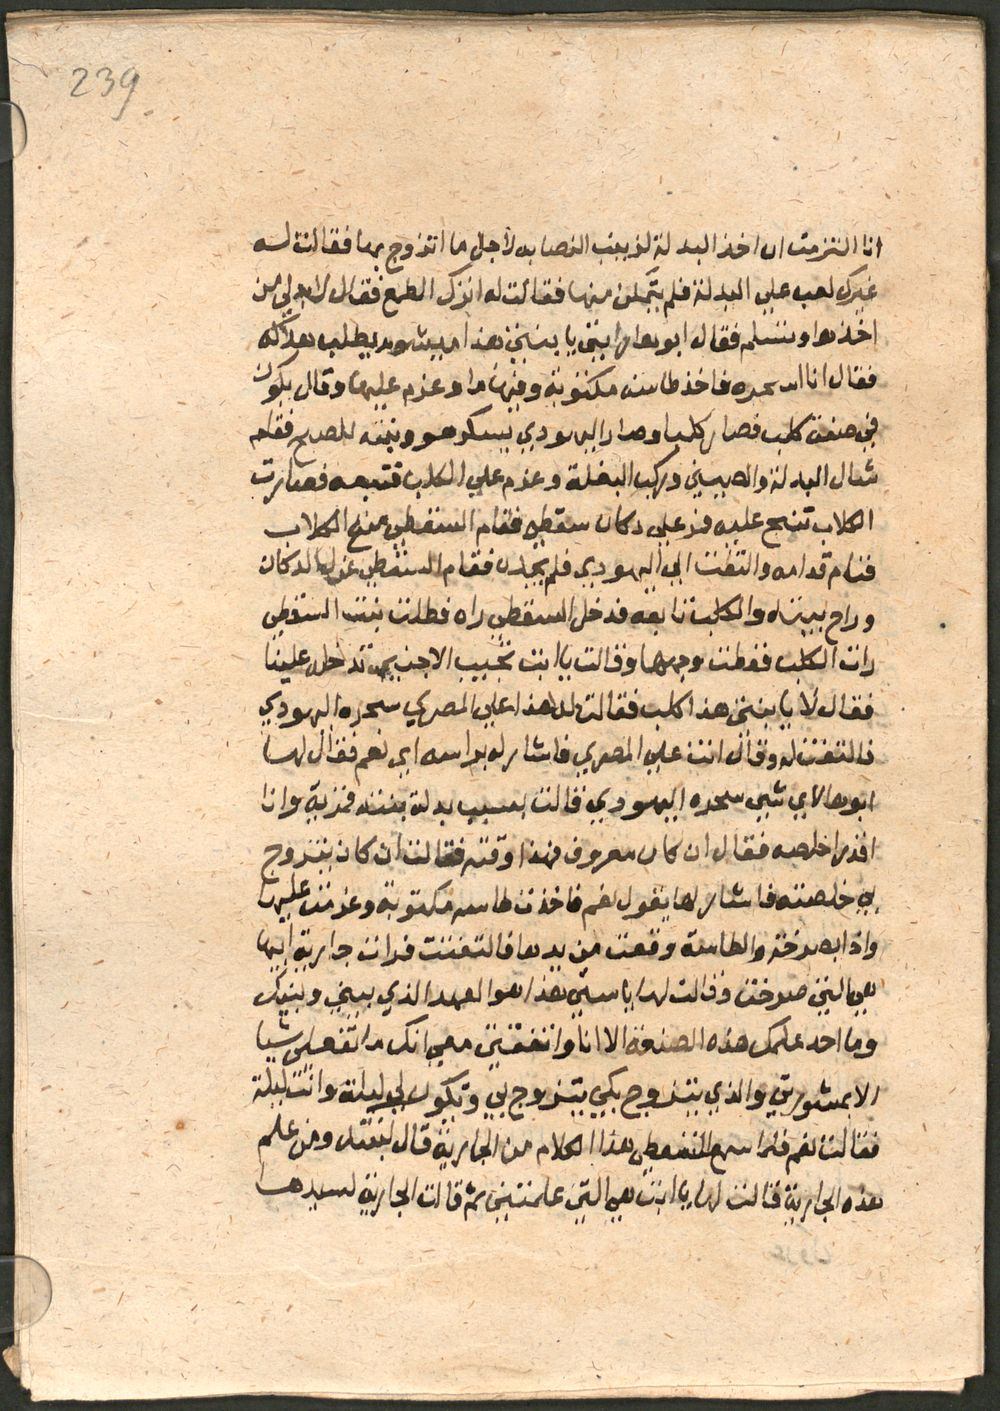 239
انا التزمت ان اخذ البدلة لزينب النصابه لاجل ما اتزوج بها فقالت له
غيرك لعب علي البدلة فلم يتمكن منها فقالت له اترك الطمع فقال لابد لي من
اخذها وتسلم فقال ابوها يا بنتي هذا يطلب هلاكه
فقال انا اسحره فاخذ طاسه مكتوبة وفيها ما وعزم عليها وقال بكون
في صفت كلب فصار كلبا وصار اليهودي يسكر هو وبنته للصبح فقام
شال البدلة والصينيه وركب البغلة وعزم علي الكلب فتبعه فصارت
الكلاب تنبح عليه فمر علي دكان سقطي فقام السقطي منع الكلاب
فنام قدامه والتفت الي اليهودي فلم يجده فقام السقطي عزل الدكان
وراح بيته والكلب تابعه فدخل السقطي داره فطلت بنت السقطي
رات الكلب فغطت وجهها وقالت يا ابت تجيب الاجنبي تدخل علينا
فقال لا يا بنتي هذا كلب فقالت له هذا علي المصري سحره اليهودي
فالتفتت له وقال انت علي المصري فاشار له براسه اي نعم فقال لها
ابوها لاي شي سحره اليهودي قالت بسبب بدلة بنته قمرية وانا
اقدر اخلصه فقال ان كان معروف فهذا وقته فقالت ان كان يتزوج
بي خلصته فاشار لها يقول نعم فاخذت طاسه مكتوبة وعزمت عليها
واذا بصرخة والطاسة وقعت من يدها فالتفتت فرات جارية ابيها
هي التي صرخت وقالت لها يا ستي هذا هو العهد الذي بيني وبينك
وما احد علمك هذه الصنعة الا انا واتفقتي معي انك ما تفعلي شيا
الا بمشورتي والذي يتزوج بكي يتزوج بي وتكون لي ليلة وانت ليلة
فقالت نعم فلما سمع السقطي هذا الكلام من الجارية قال لبنته ومن علم
هذه الجارية قالت لها يا ابت هي التي علمتني ثم قالت الجارية لسيدها